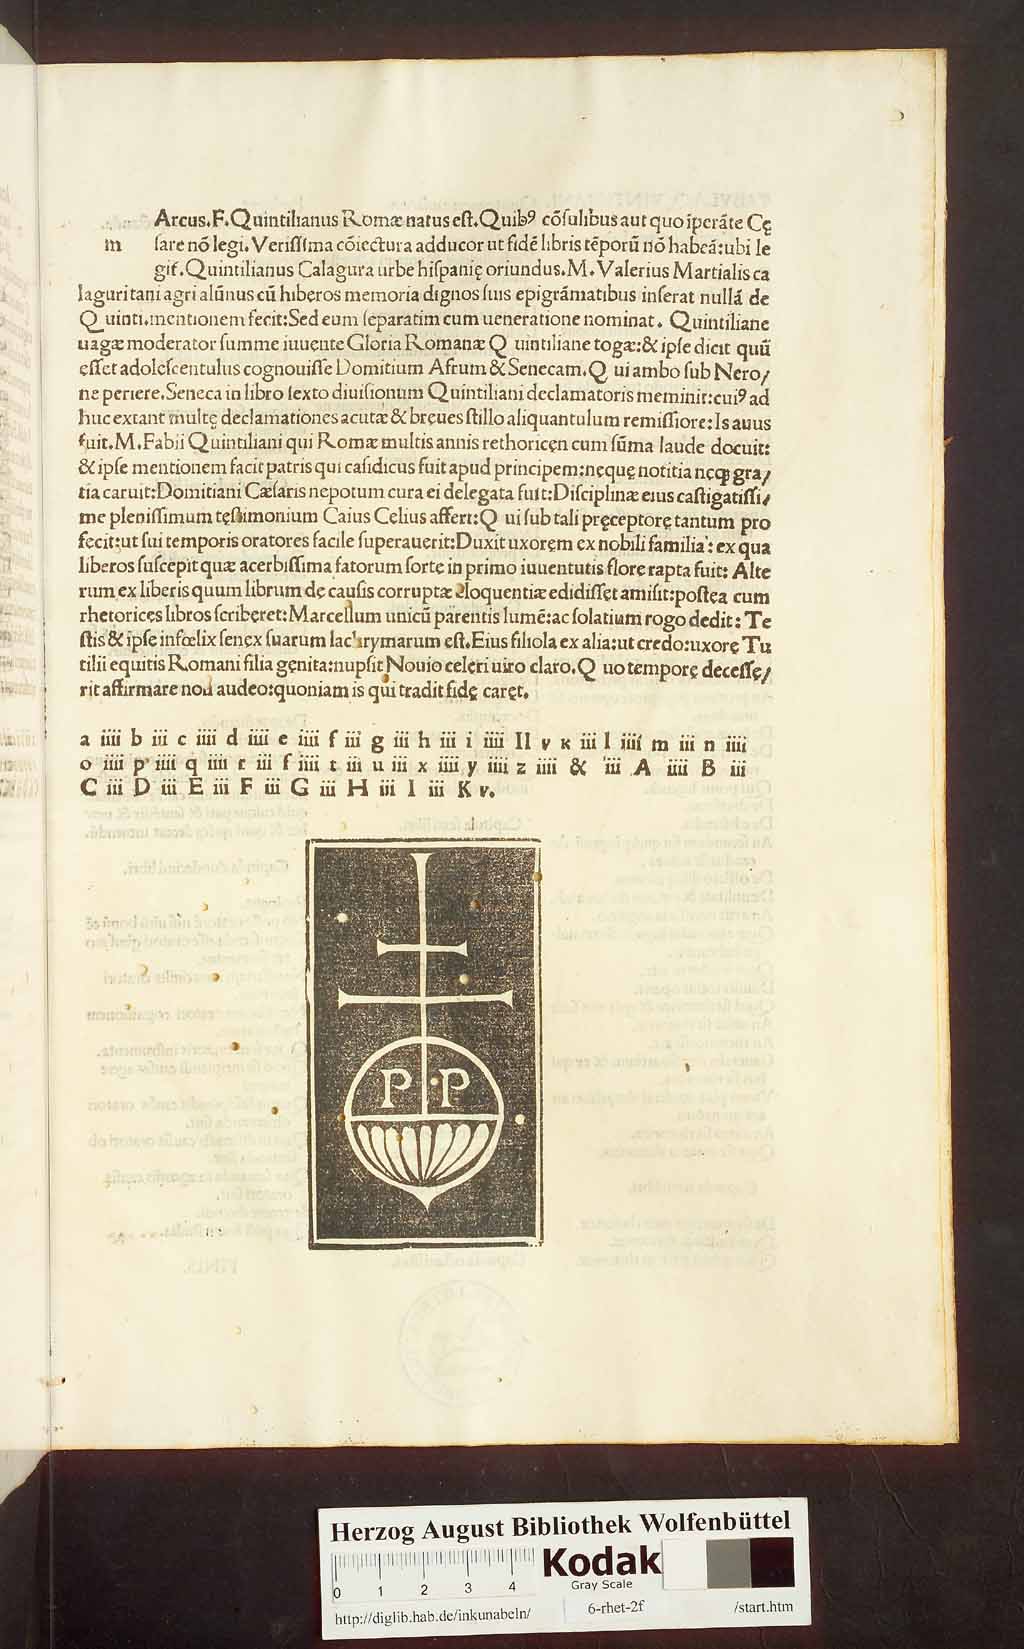 Arcus.F.Quintilianus Romæ natus eſt.Quibꝰ cõſulibus aut quo ĩperãte Cę
m ſare nõ legi.Veriſſima cõiectura adducor ut fidẽ libris tẽporũ nõ habeã:ubi le
git̃.Quintilianus Calagura urbe hiſpanię oriundus.M.Valerius Martialis ca
laguritani agri alũnus cũ hiberos memoria dignos ſuis epigrãmatibus inſerat nullã de
Quinti.mentionem fecit:Sed eum ſeparatim cum ueneratione nominat. Quintiliane
uagæ moderator ſumme iuuente Gloria Romanæ Quintiliane togæ:& ipſe dicit quũ
eſſet adoleſcentulus cognouiſſe Domitium Afrum & Senecam.Qui ambo ſub Nero/
ne periere.Seneca in libro ſexto diuiſionum Quintiliani declamatoris meminit:cuiꝰ ad
huc extant multę declamationes acutæ & breues ſtillo aliquantulum remiſſiore:Is auus
fuit.M.Fabii Quintiliani qui Romæ multis annis rethoricęn cum ſũma laude docuit:
& ipſe mentionem facit patris qui caſidicus fuit apud principem:nequę notitia neqꝫ gra/
tia caruit:Domitiani Cæſaris nepotum cura ei delegata fuit:Diſciplinæ eius caſtigatiſſi/
me pleniſſimum tęſtimonium Caius Celius affert:Qui ſub tali pręceptorę tantum pro
fecit:ut ſui temporis oratores facile ſuperauerit:Duxit uxorẹm ex nobili familia: ex qua
liberos ſuſcepit quæ acerbiſſima fatorum ſorte in primo iuuentutis flore rapta fuit: Alte
rum ex liberis quum librum de cauſis corruptæ eloquentiæ edidiſſet amiſit:poſtea cum
rhetorices libros ſcriberet:Marcellum unicũ parentis lumẽ:ac ſolatium rogo dedit: Te
ſtis & ipſe infœlix ſenex ſuarum lachrymarum eſt.Eius filiola ex alia:ut credo:uxore Tu
tilii equitis Romani filia genita:nupſit Nouio celeri uiro claro.Quo tempore deceſſę/
rit affirmare non audeo:quoniam is qui tradit fidę caret.
a iiii b iii c iiii d iiii e iiii f iii g iii h iii i iiii II v κ iii l iiii m iii n iiii
o iiii p iiii q iiii r iii ſ iiii t iii u iii x iiii y iiii z iiii & iii A iiii B iii
C iii D iii E iii F iii G iii H iii I iii K v.
P P
Herzog August Bibliothek Wolfenbüttel
Kodak
Gray Scale
0 1 2 3 4
http://diglib.hab.de/inkunabeln/ 6-rhet-2f /start.htm